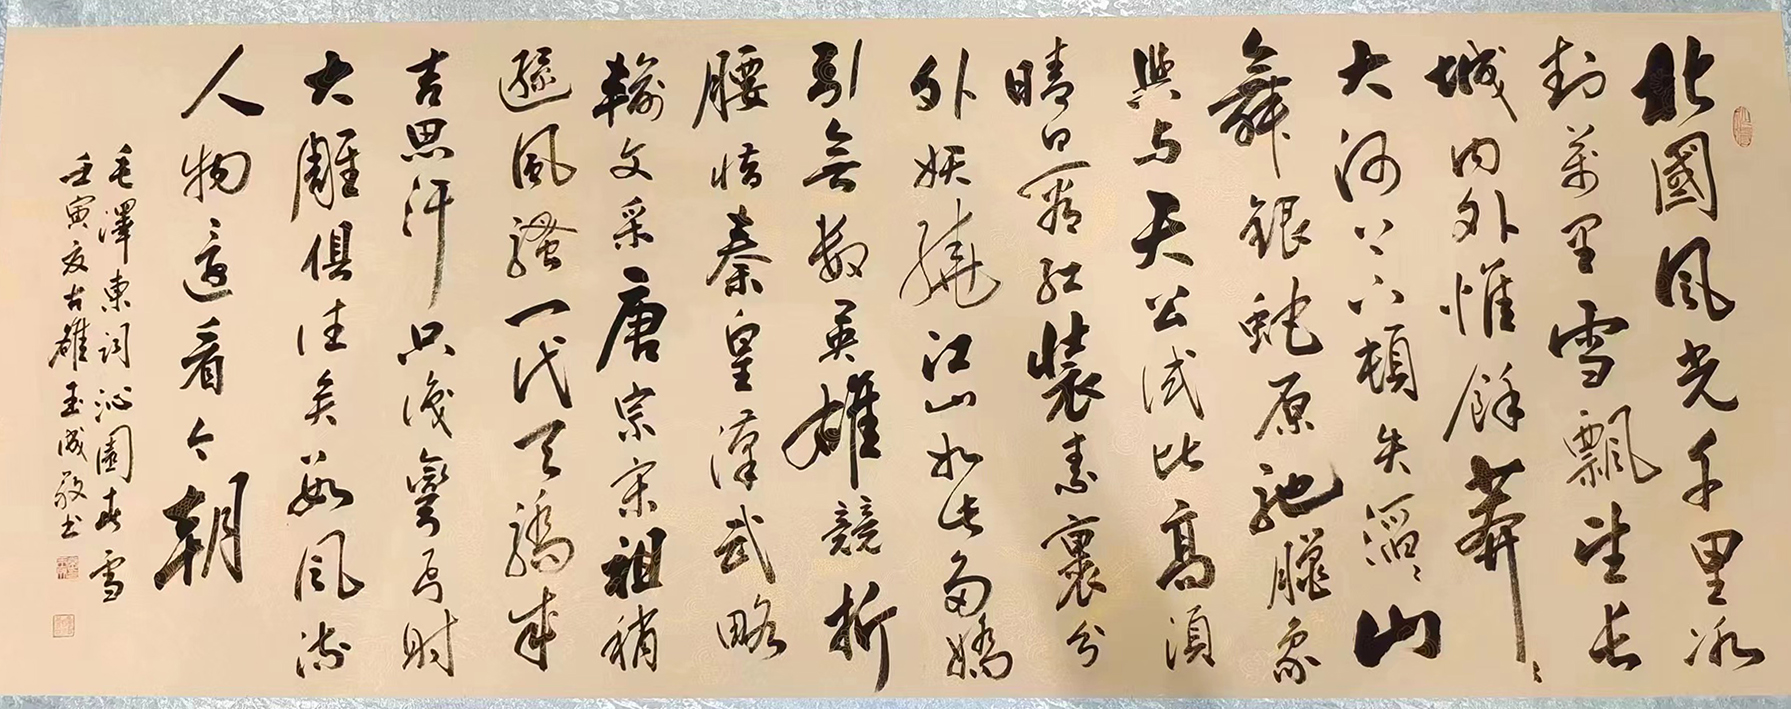 北國風光千里冰
封萬里雪飄望長
城内外惟餘莽〻
大河上下頓失滔〻山
舞銀蛇原馳臘象
與天公試比高須
晴日看紅裝素裹分
外妖嬈江山如此多嬌
引無數英雄競折
腰惜秦皇漢武略
輸文采唐宗宋祖稍
遜風騷一代天驕成
吉思汗只識彎弓射
大雕俱往矣數風流
人物還看今朝
毛澤東詞沁園春雪
壬寅夏古雒玉成敬书